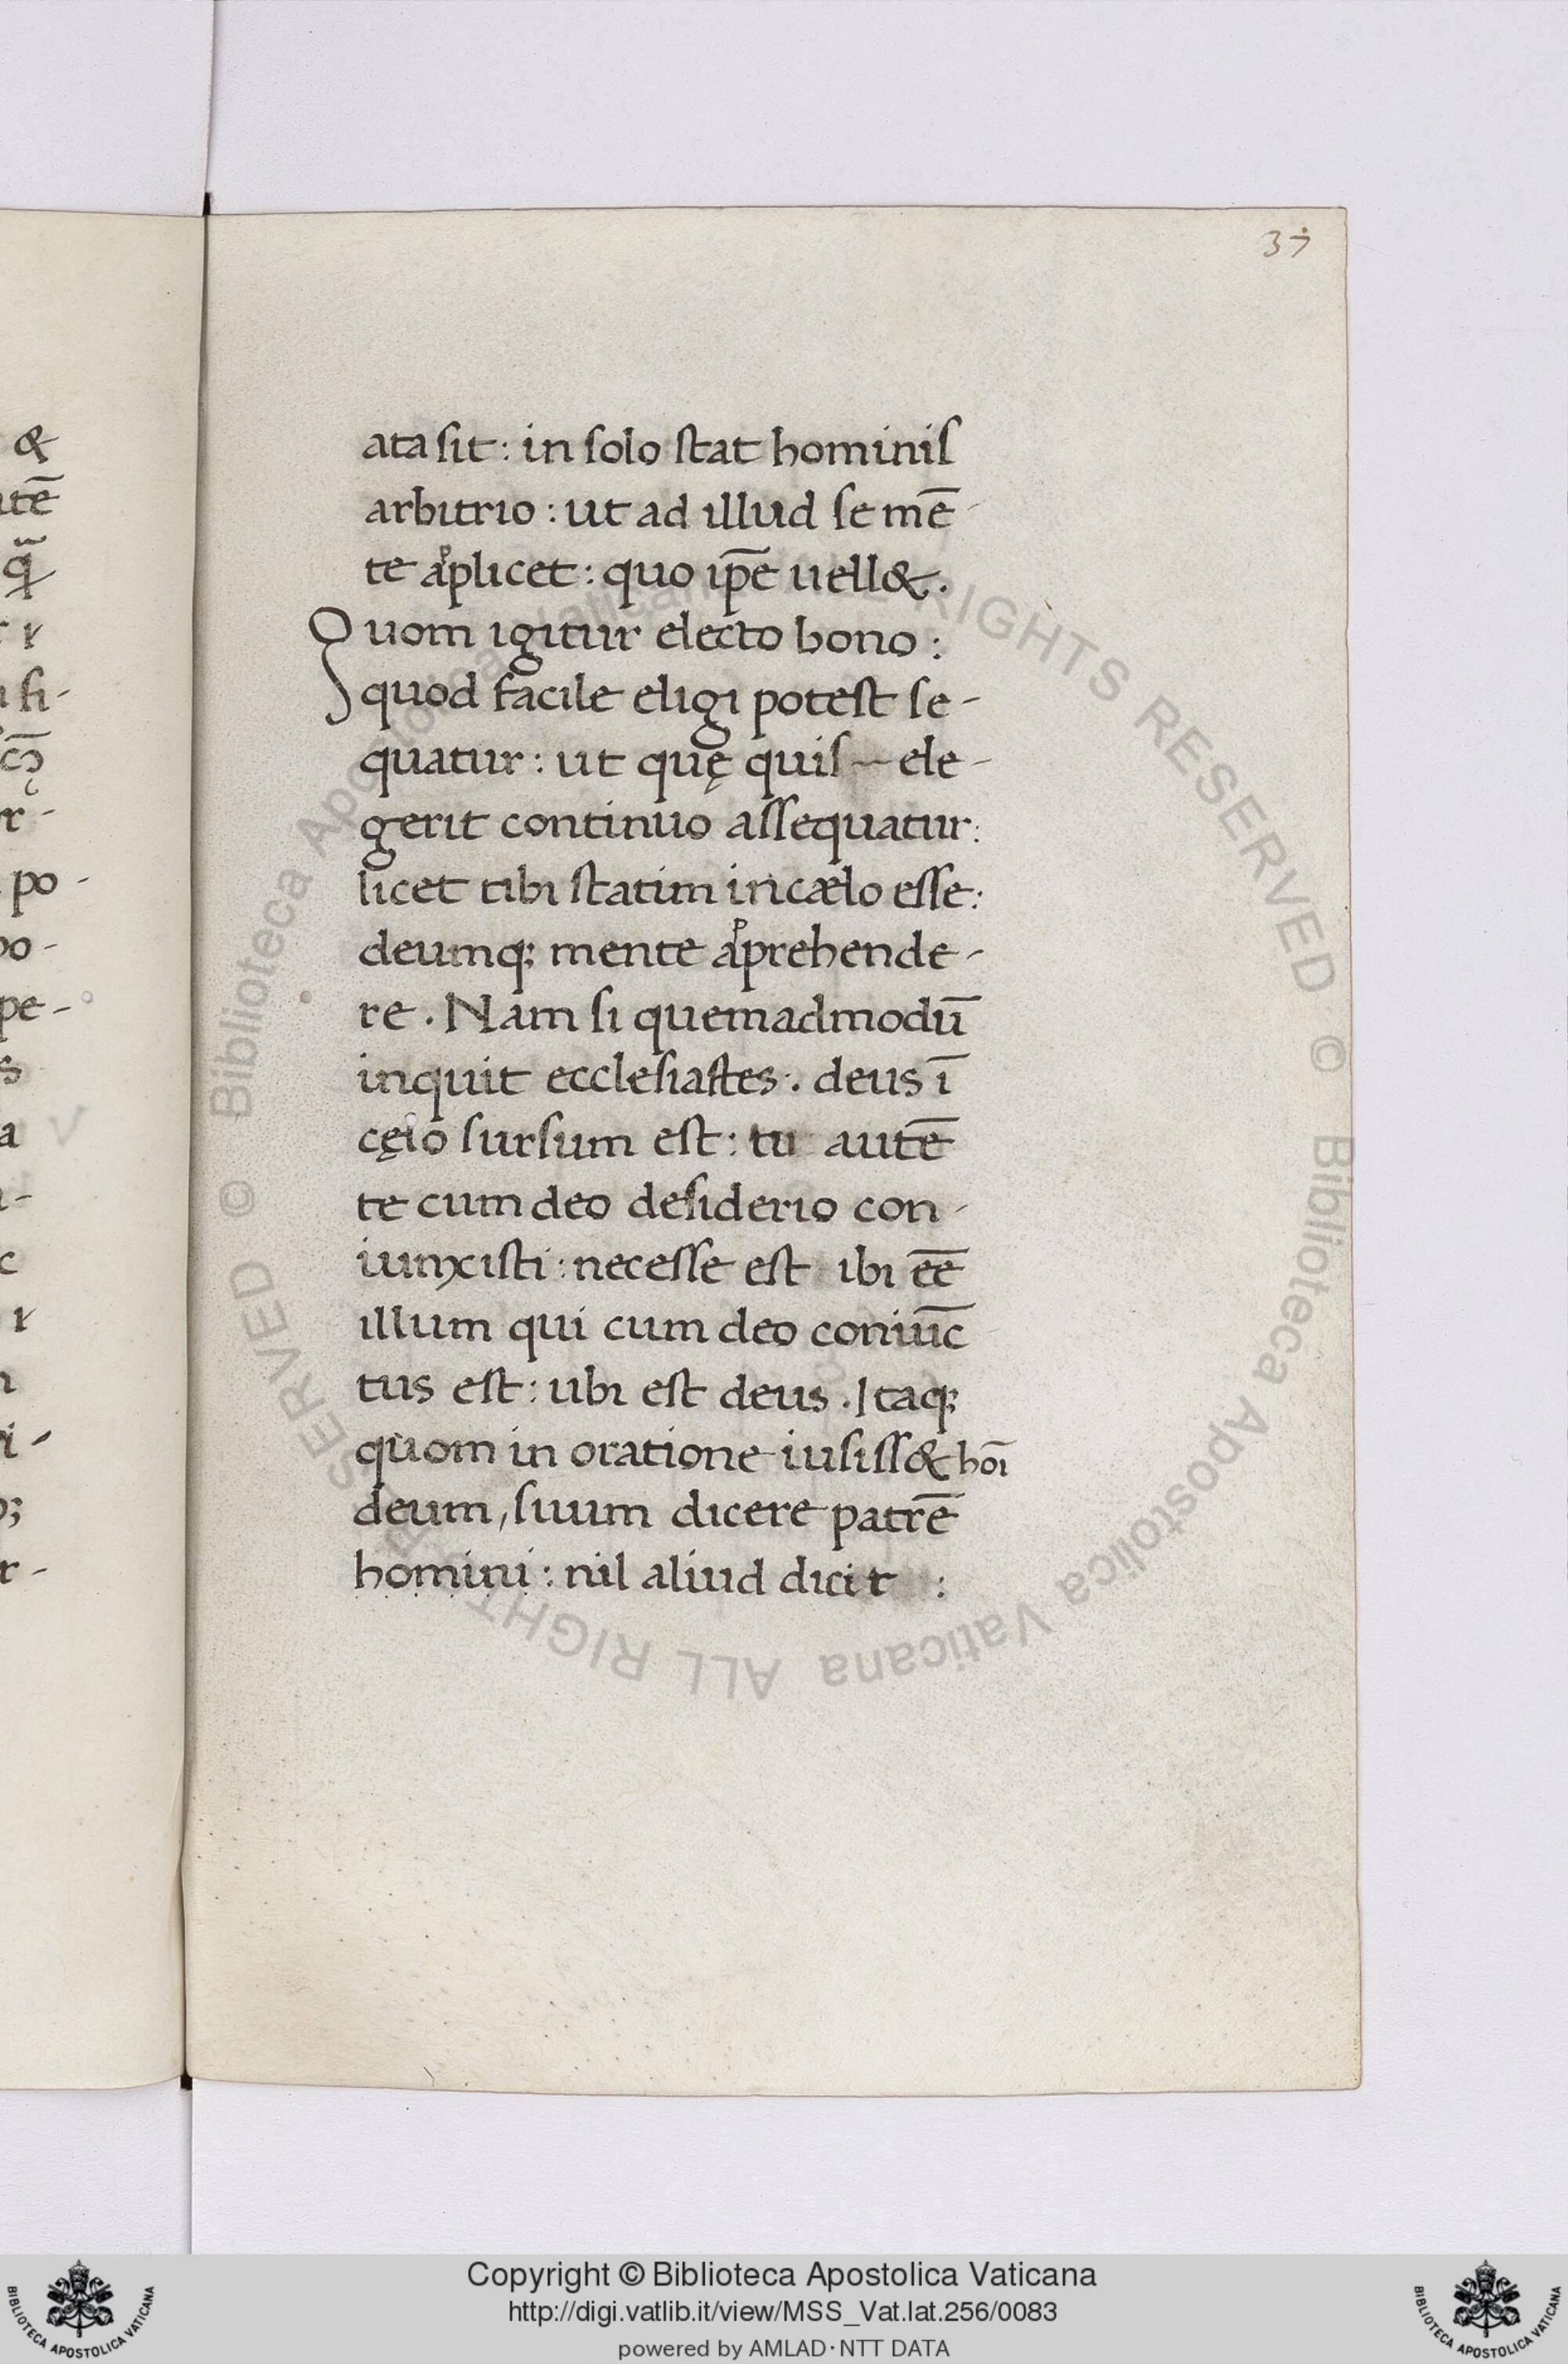 37
&
utē
q̃
r
ſi-
r-
po-
po-
pe-
a
c
r
r-
ata ſit : in ſolo ſtat hominiſ
arbitrio : ut ad illud ſe mē-
te applicet : quo ip̄e uell&.
Quom igitur electo bono :
quod facile eligi poteſt ſe-
quatur : ut quę quiſ — ele-
gerit continuo aſſequatur :
licet tibi ſtatim in cælo eſſe :
deumq; mente apprehende-
re . Nam ſi quemadmodū
inquit eccleſiaſtes . deus ī
cęlo ſurſum eſt : tu autē
te cum deo deſiderio con-
iunxiſti : neceſſe eſt ibi ēē
illum qui cum deo coniūc
tus eſt : ubi eſt deus . Itaq;
quom in oratione iuſiſſ& hoī
deum, ſuum dicere patrē
homini : nil aliud dicit :
© Biblioteca Apostolica Vaticana ALL RIGHTS RESERVED © Biblioteca Apostolica Vaticana ALL RIGHTS RESERVED
BIBLIOTECA APOSTOLICA VATICANA
Copyright © Biblioteca Apostolica Vaticana
http://digi.vatlib.it/view/MSS_Vat.lat.256/0083
powered by AMLAD · NTT DATA
BIBLIOTECA APOSTOLICA VATICANA